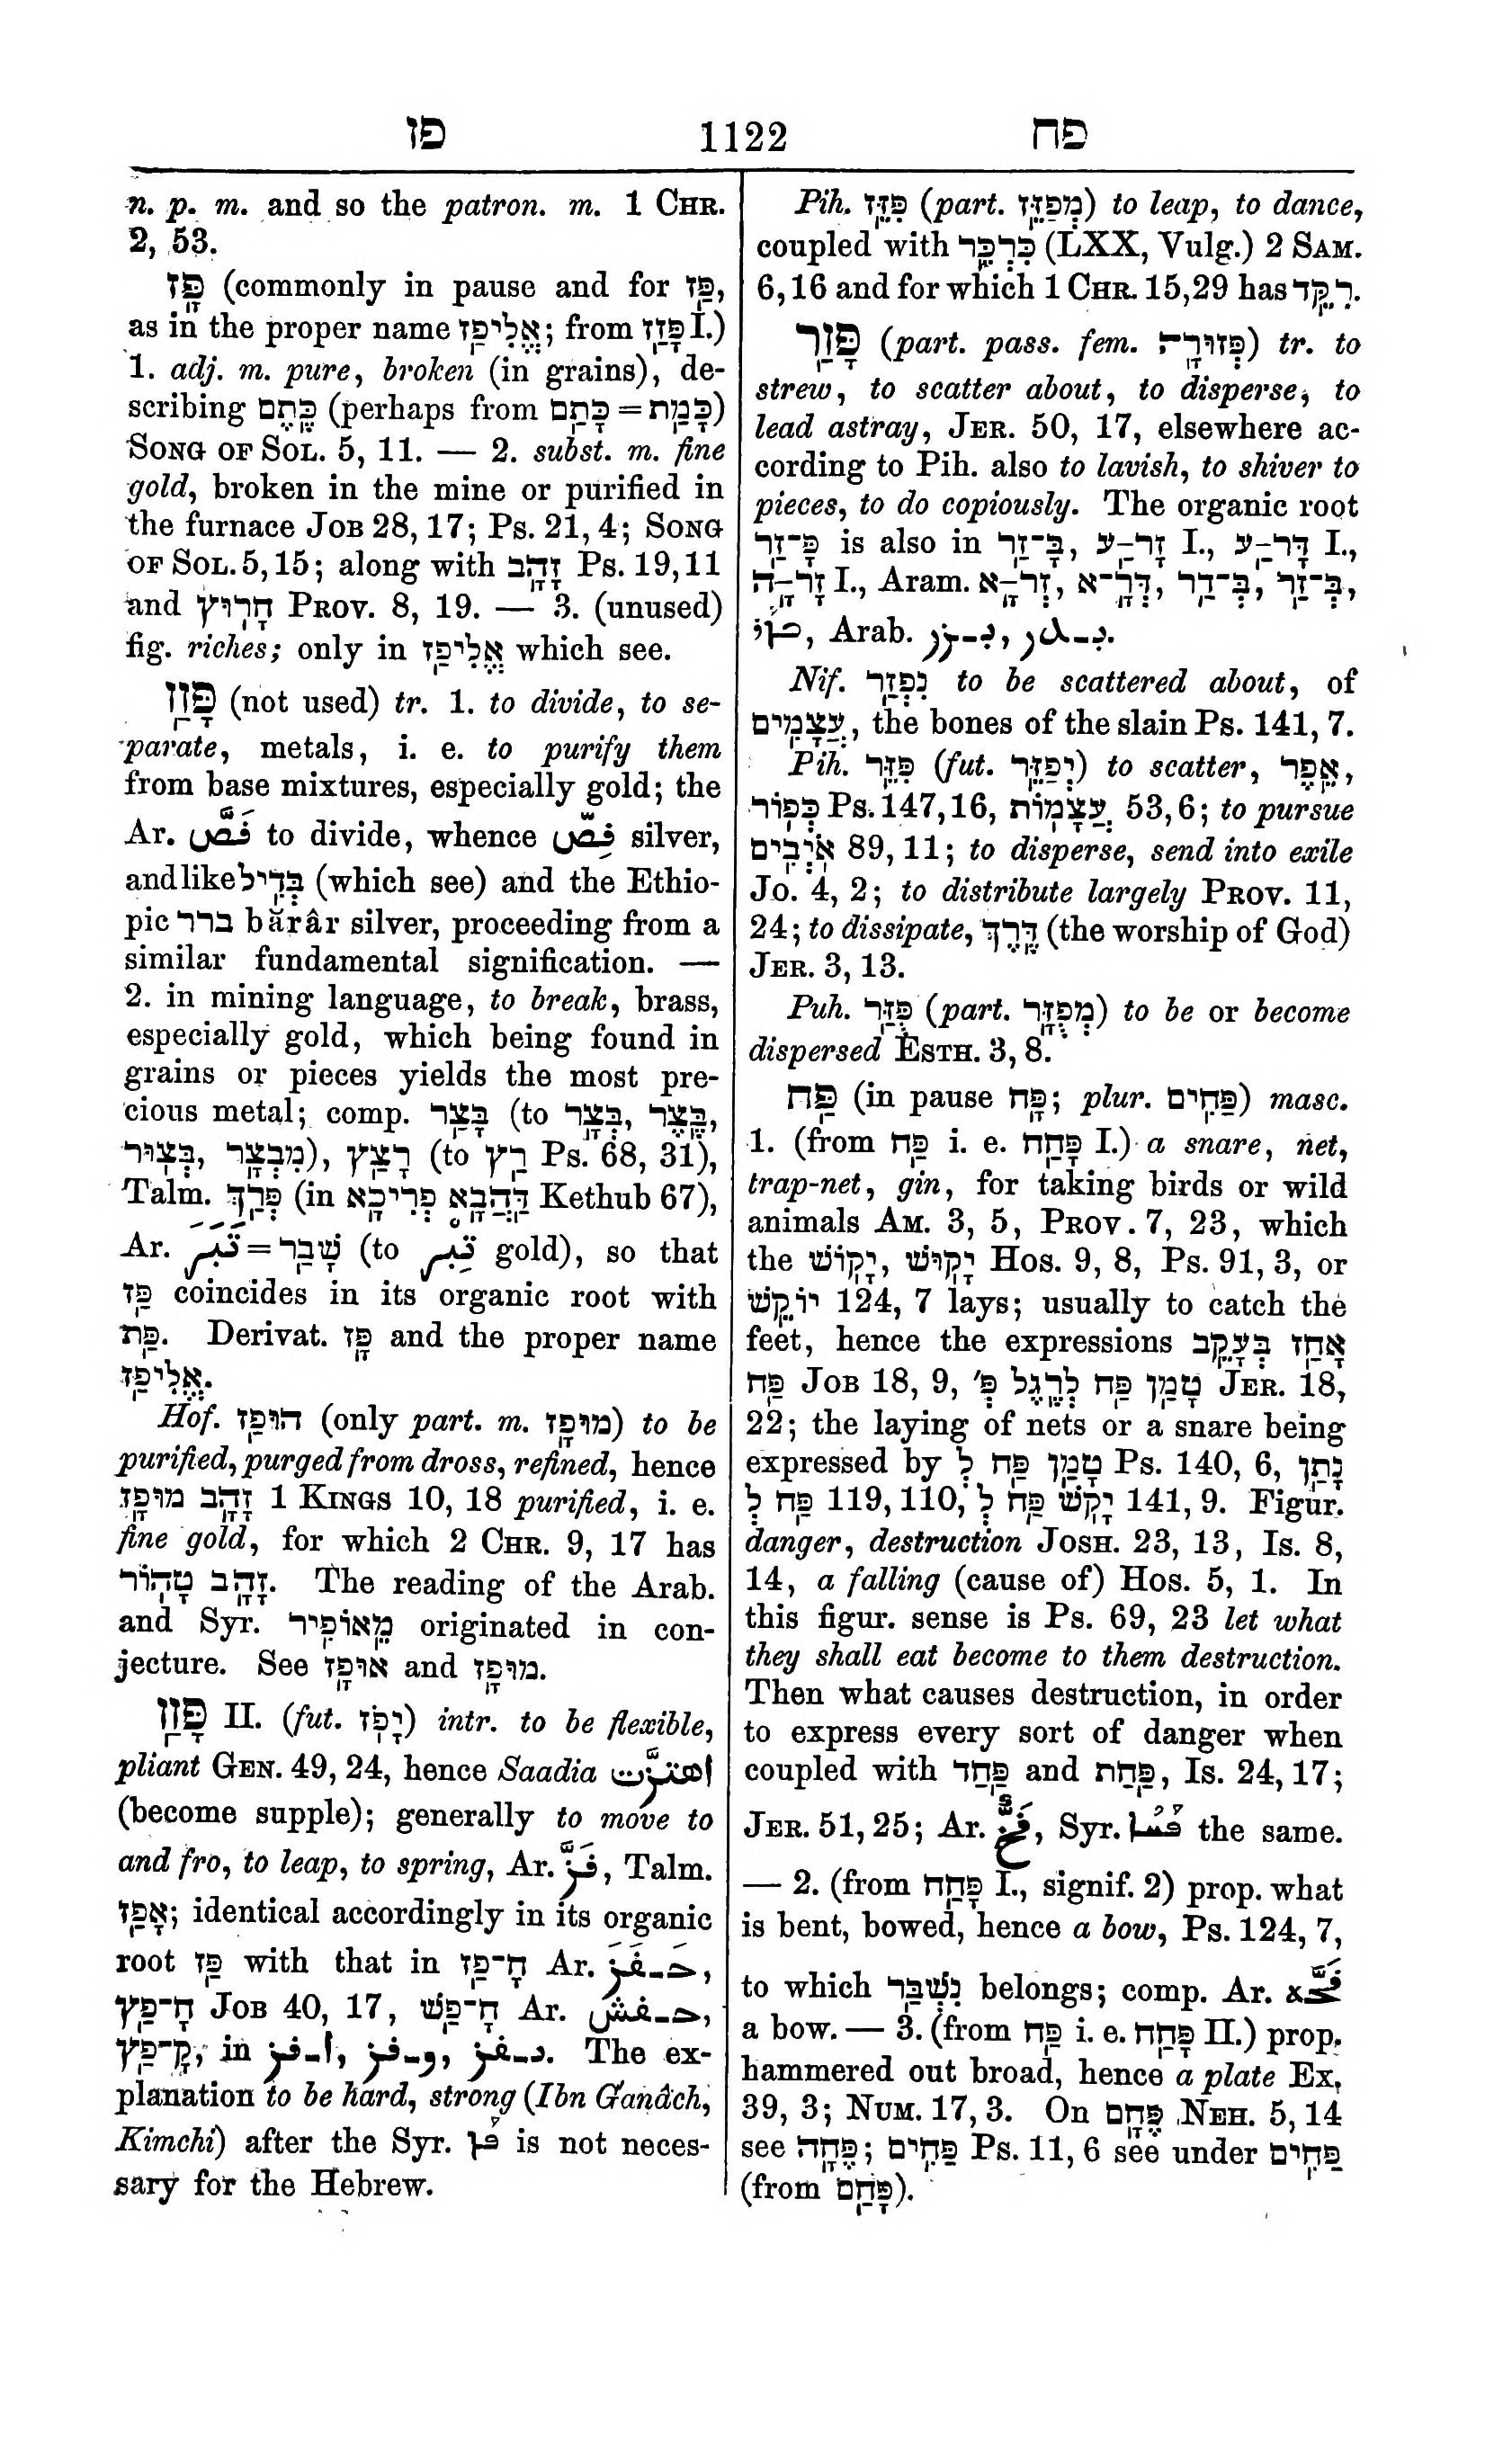 פז 1122 פח
n. p. m. and so the patron. m. 1 CHR.
2, 53.
פָּז (commonly in pause and for פַּז,
as in the proper name אֱלִיפַז; from פָּזַז I.)
1. adj. m. pure, broken (in grains), de-
scribing כֶּתֶם (perhaps from כָּתַם = כָּמַת)
SONG OF SOL. 5, 11. — 2. subst. m. fine
gold, broken in the mine or purified in
the furnace JOB 28, 17; Ps. 21, 4; SONG
OF SOL. 5, 15; along with זָהָב Ps. 19, 11
and חָרוּץ PROV. 8, 19. — 3. (unused)
fig. riches; only in אֱלִיפַז which see.
פָּזַז (not used) tr. 1. to divide, to se-
parate, metals, i. e. to purify them
from base mixtures, especially gold; the
Ar. فَصَّ to divide, whence فِصّ silver,
and like בְּדִיל (which see) and the Ethio-
pic ברר bărâr silver, proceeding from a
similar fundamental signification. —
2. in mining language, to break, brass,
especially gold, which being found in
grains or pieces yields the most pre-
cious metal; comp. בָּצַר (to בֶּצֶר, בְּצָר,
בְּצוּר, מִבְצָר), רָצַץ (to רַץ Ps. 68, 31),
Talm. פְּרַךְ (in דַּהֲבָא פְרִיכָא Kethub 67),
Ar. تَبَرَ = שָׁבַר (to تِبر gold), so that
פַּז coincides in its organic root with
פַּת. Derivat. פָּז and the proper name
אֱלִיפַז.
Hof. הוּפַז (only part. m. מוּפָז) to be
purified, purged from dross, refined, hence
זָהָב מוּפָז 1 KINGS 10, 18 purified, i. e.
fine gold, for which 2 CHR. 9, 17 has
זָהָב טָהוֹר. The reading of the Arab.
and Syr. מֵאוֹפִיר originated in con-
jecture. See אוּפָז and מוּפָז.
פָּזַז II. (fut. יָפֹז) intr. to be flexible,
pliant GEN. 49, 24, hence Saadia اهتزّت
(become supple); generally to move to
and fro, to leap, to spring, Ar. فَزَّ, Talm.
אָפַז; identical accordingly in its organic
root פַּז with that in חָ־פַז Ar. حَـفَزَ,
חָ־פַץ JOB 40, 17, חָ־פַשׂ Ar. حـفش,
קָ־פַץ, in ا-فز, و-فز, د-فز. The ex-
planation to be hard, strong (Ibn G'anâch,
Kimchi) after the Syr. is not neces-
sary for the Hebrew.
Pih. פִּזֵּז (part. מְפַזֵּז) to leap, to dance,
coupled with כִּרְכֵּר (LXX, Vulg.) 2 SAM.
6, 16 and for which 1 CHR. 15, 29 has רִקֵּד.
פָּזַר (part. pass. fem. פְּזוּרָה) tr. to
strew, to scatter about, to disperse, to
lead astray, JER. 50, 17, elsewhere ac-
cording to Pih. also to lavish, to shiver to
pieces, to do copiously. The organic root
פָּ־זַר is also in בָּ־זַר, זָר־ַע I., דָּר־ַע I.,
זָר־ָה I., Aram. זְר־ָא, דְּרָ־א, בְּ־דַר, בְּ־זַר,
Arab. بـزر, بـذر.
Nif. נִפְזַר to be scattered about, of
עֲצָמִים, the bones of the slain Ps. 141, 7.
Pih. פִּזֵּר (fut. יְפַזֵּר) to scatter, אֵפֶר,
כְּפוֹר Ps. 147, 16, עֲצָמוֹת 53, 6; to pursue
אֹיְבִים 89, 11; to disperse, send into exile
Jo. 4, 2; to distribute largely PROV. 11,
24; to dissipate, דֶּרֶךְ (the worship of God)
JER. 3, 13.
Puh. פֻּזַּר (part. מְפֻזָּר) to be or become
dispersed ESTH. 3, 8.
פַּח (in pause פָּח; plur. פַּחִים) masc.
1. (from פַּח i. e. פָּחַח I.) a snare, net,
trap-net, gin, for taking birds or wild
animals AM. 3, 5, PROV. 7, 23, which
the יָקוּשׁ, יָקוֹשׁ Hos. 9, 8, Ps. 91, 3, or
יוֹקֵשׁ 124, 7 lays; usually to catch the
feet, hence the expressions אָחַז בְּעָקֵב
פַּח JOB 18, 9, טָמַן פַּח לְרֶגֶל פְּ׳ JER. 18,
22; the laying of nets or a snare being
expressed by טָמַן פַּח לְ Ps. 140, 6, נָתַן
פַּח לְ 119, 110, יָקֹשׁ פַּח לְ 141, 9. Figur.
danger, destruction JOSH. 23, 13, Is. 8,
14, a falling (cause of) Hos. 5, 1. In
this figur. sense is Ps. 69, 23 let what
they shall eat become to them destruction.
Then what causes destruction, in order
to express every sort of danger when
coupled with פַּחַד and פַּחַת, Is. 24, 17;
JER. 51, 25; Ar. فَخّ, Syr. the same.
— 2. (from פָּחַח I., signif. 2) prop. what
is bent, bowed, hence a bow, Ps. 124, 7,
to which נִשְׁבַּר belongs; comp. Ar.
a bow. — 3. (from פַּח i. e. פָּחַח II.) prop.
hammered out broad, hence a plate Ex.
39, 3; NUM. 17, 3. On פֶּחָם NEH. 5, 14
see פֶּחָה; פַּחִים Ps. 11, 6 see under פַּחִים
(from פָּחַם).